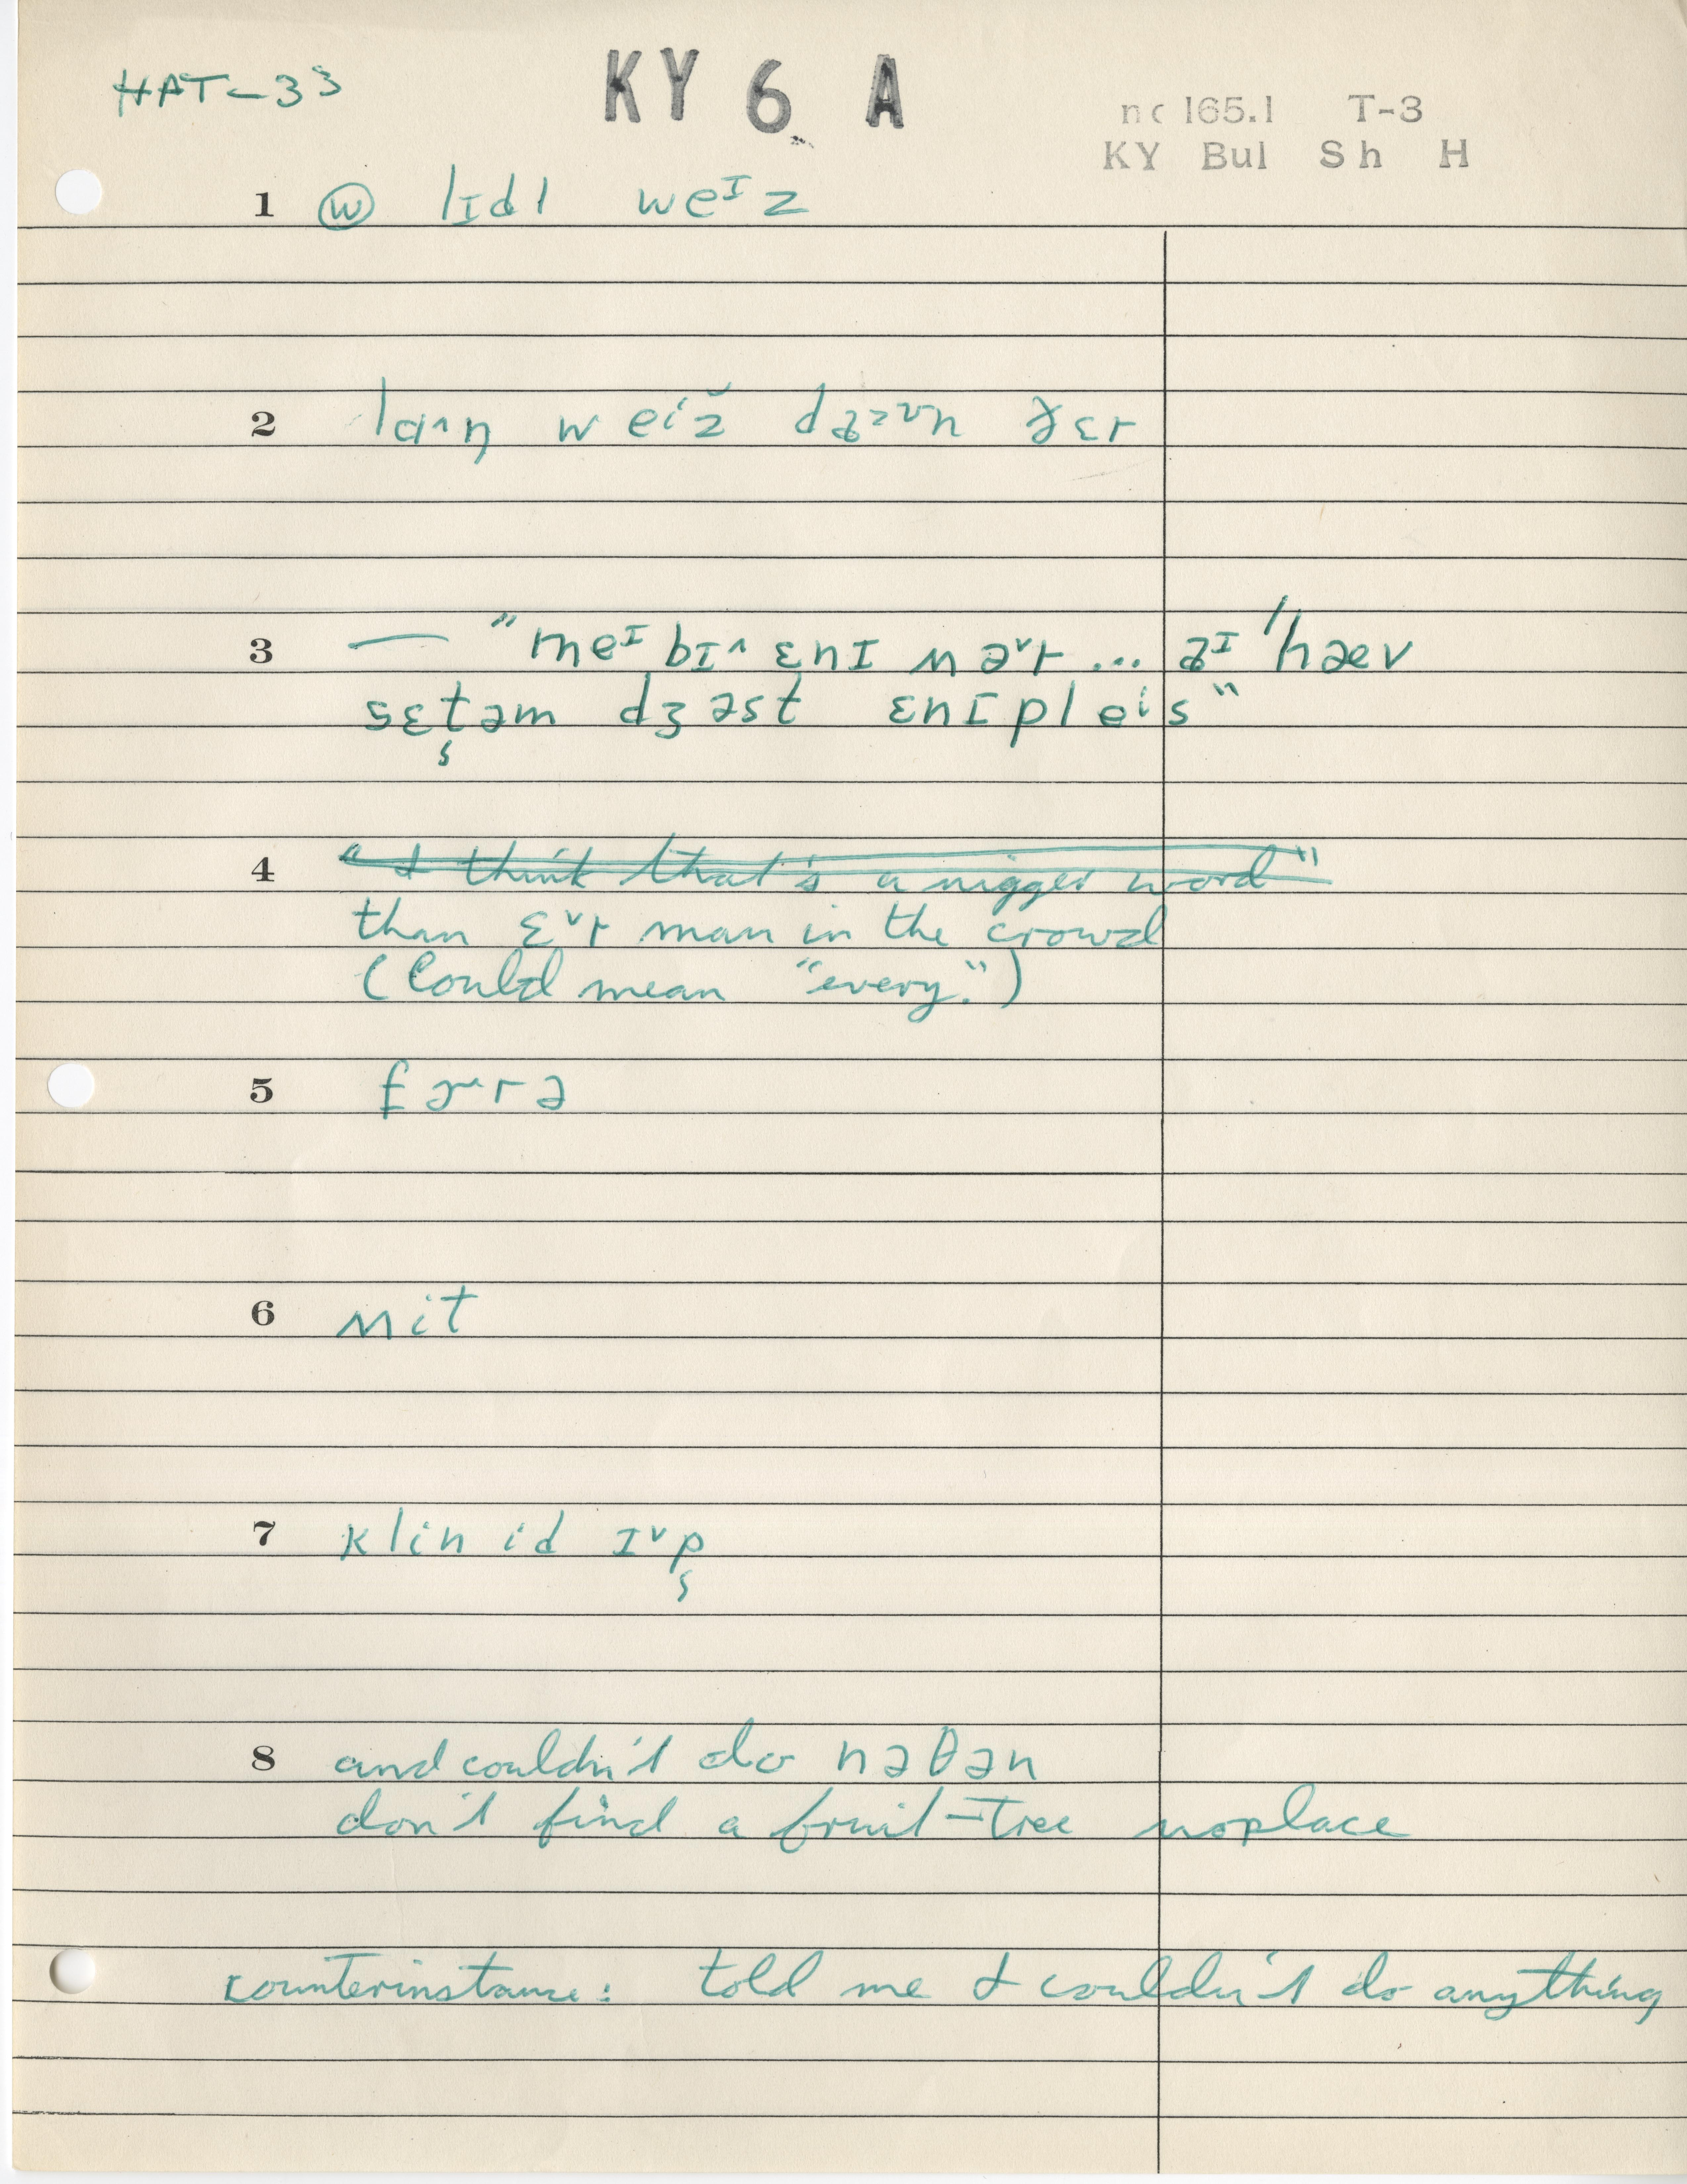 HAT-33
KY 6 A
no 165.1 T-3
KY Bul Sh H
1 ⓦ lɪdl weᶦz
2 weiz
3 — "meᶦ bɪ^ ɛnɪ
dʒəst ɛnɪpleis"
4 "I think that's a nigger word"
than ɛ˅r man in the crowd
(Could mean "every.")
5
6 nit
7 klin id ɪ˅p̬
8 and couldn't do nəθən
don't find a fruit-tree noplace
counterinstance: told me I couldn't do anything